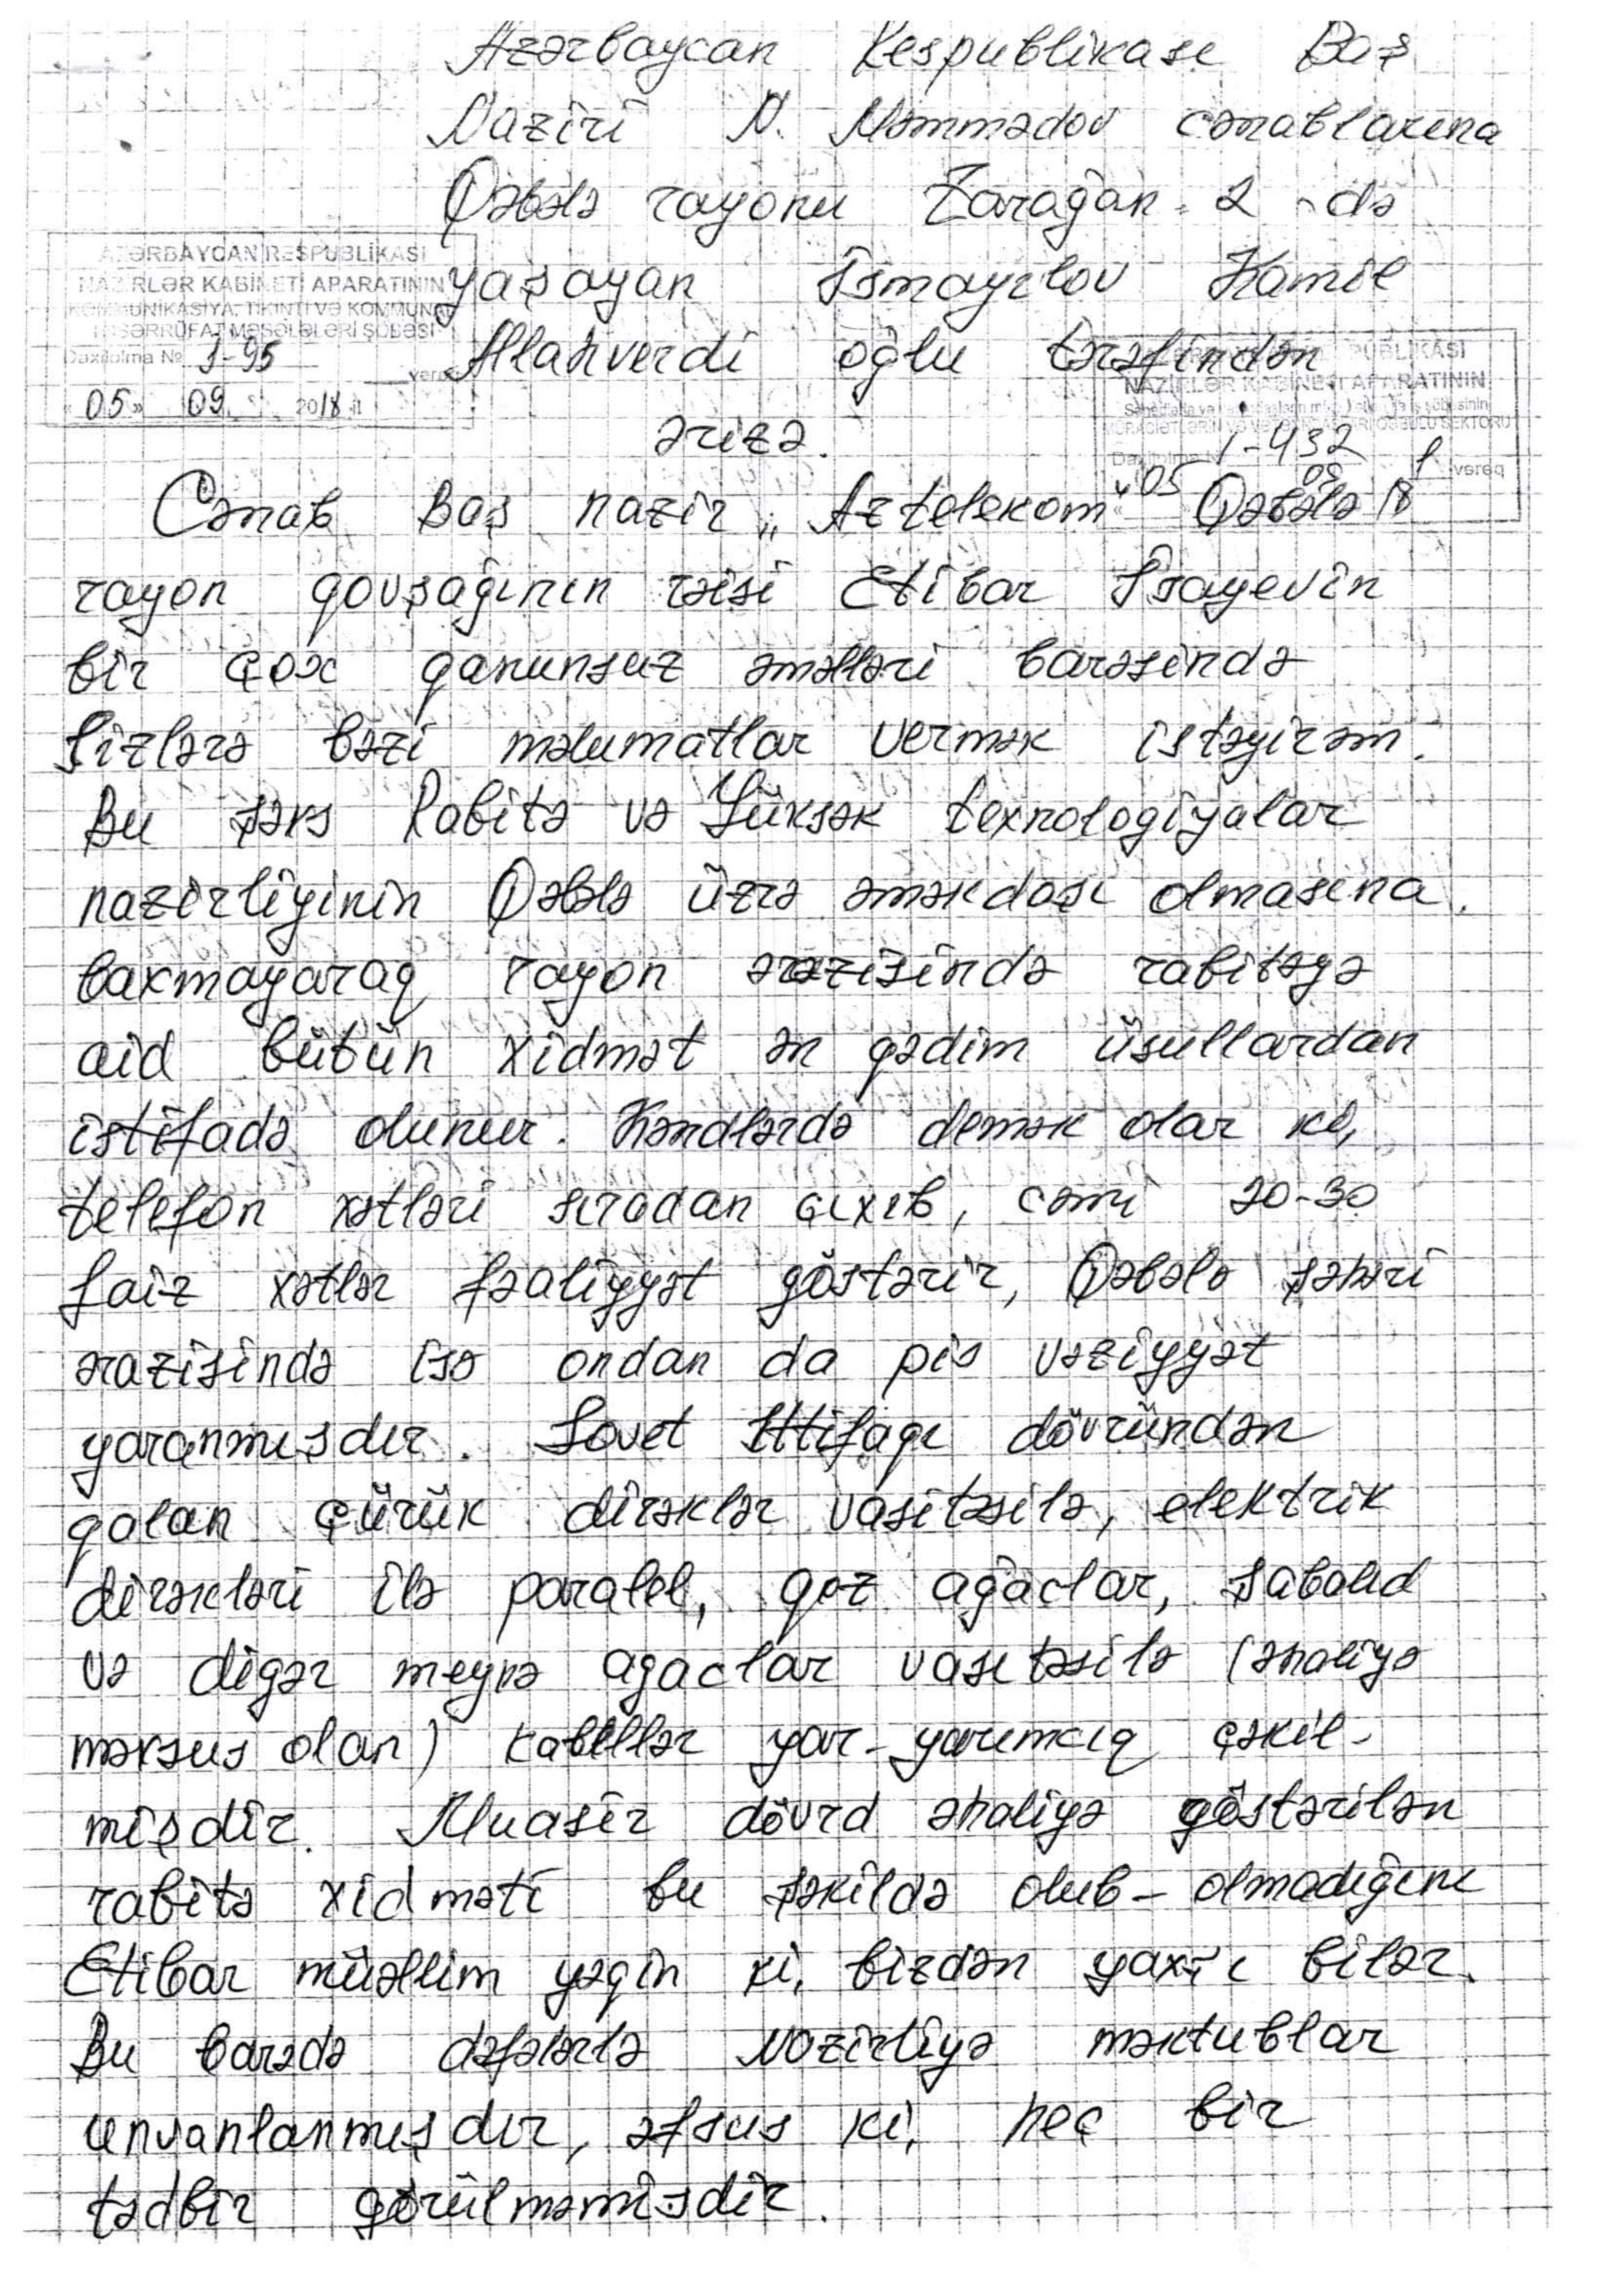 Azərbaycan Respublikası Baş
Naziri N. Məmmədov cənablarına
Qəbələ rayonu Zarağan-2-də
yaşayan İsmayılov Kamil
Allahverdi oğlu tərəfindən
AZƏRBAYCAN RESPUBLİKASI
NAZİRLƏR KABİNETİ APARATININ
KOMMUNİKASİYA, TİKİNTİ VƏ KOMMUNAL
TƏSƏRRÜFAT MƏSƏLƏLƏRİ ŞÖBƏSİ
Daxilolma № 1-95
vərəq
"05" 09 2018 il
NAZİRLƏR KABİNETİ APARATININ
Daxilolma № 1-432
1 vərəq
"05 09 18
ərizə.
Cənab Baş nazir „Aztelekom" Qəbələ
rayon qovşağının rəisi Etibar İsayevin
bir çox qanunsuz əməlləri barəsində
Sizlərə bəzi məlumatlar vermək istəyirəm.
Bu şəxs Rabitə və Yüksək texnologiyalar
nazirliyinin Qəbələ üzrə əməkdaşı olmasına
baxmayaraq rayon ərazisində rabitəyə
aid bütün xidmət ən qədim üsullardan
istifadə olunur. Kəndlərdə demək olar ki,
telefon xətləri sıradan çıxıb, cəmi 20-30
faiz xətlər fəaliyyət göstərir, Qəbələ şəhəri
ərazisində isə ondan da pis vəziyyət
yaranmışdır. Sovet İttifaqı dövründən
qalan çürük dirəklər vasitəsilə, elektrik
dirəkləri ilə paralel, qoz ağaclar, şabalıd
və digər meyvə agaclar vasıtəsilə (əhaliyə
məxsus olan) kabellər yar-yarımcıq çəkil-
mişdir. Muasir dövrd əhaliyə göstərilən
rabitə xidməti bu şəkildə olub-olmadığını
Etibar müəllim yəqin ki, bizdən yaxşı bilər.
Bu barədə dəfələrlə Nazirliyə məktublar
unvanlanmışdır, əfsus ki, heç bir
tədbir görülməmişdir.